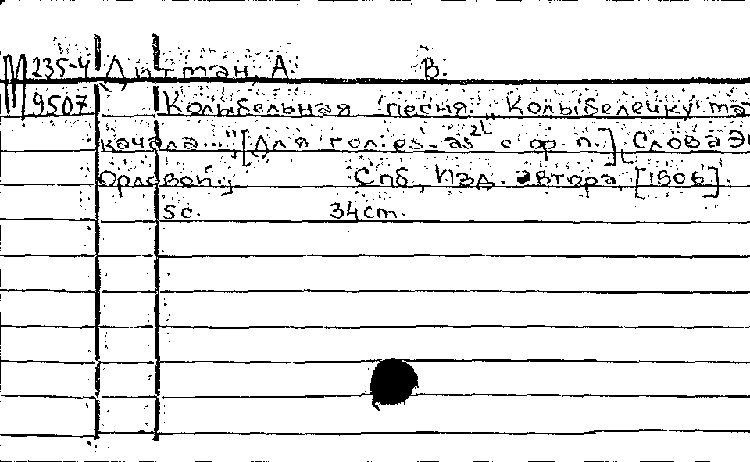 М 235-4 Дитман, А. В.
9507 Колыбельная песня. „Колыбелечку та
качала...", [Для гол. es-as² с ф.п.] [Слова Э
Орловой]. Спб, Изд. автора, [1906].
5с. 34cm.